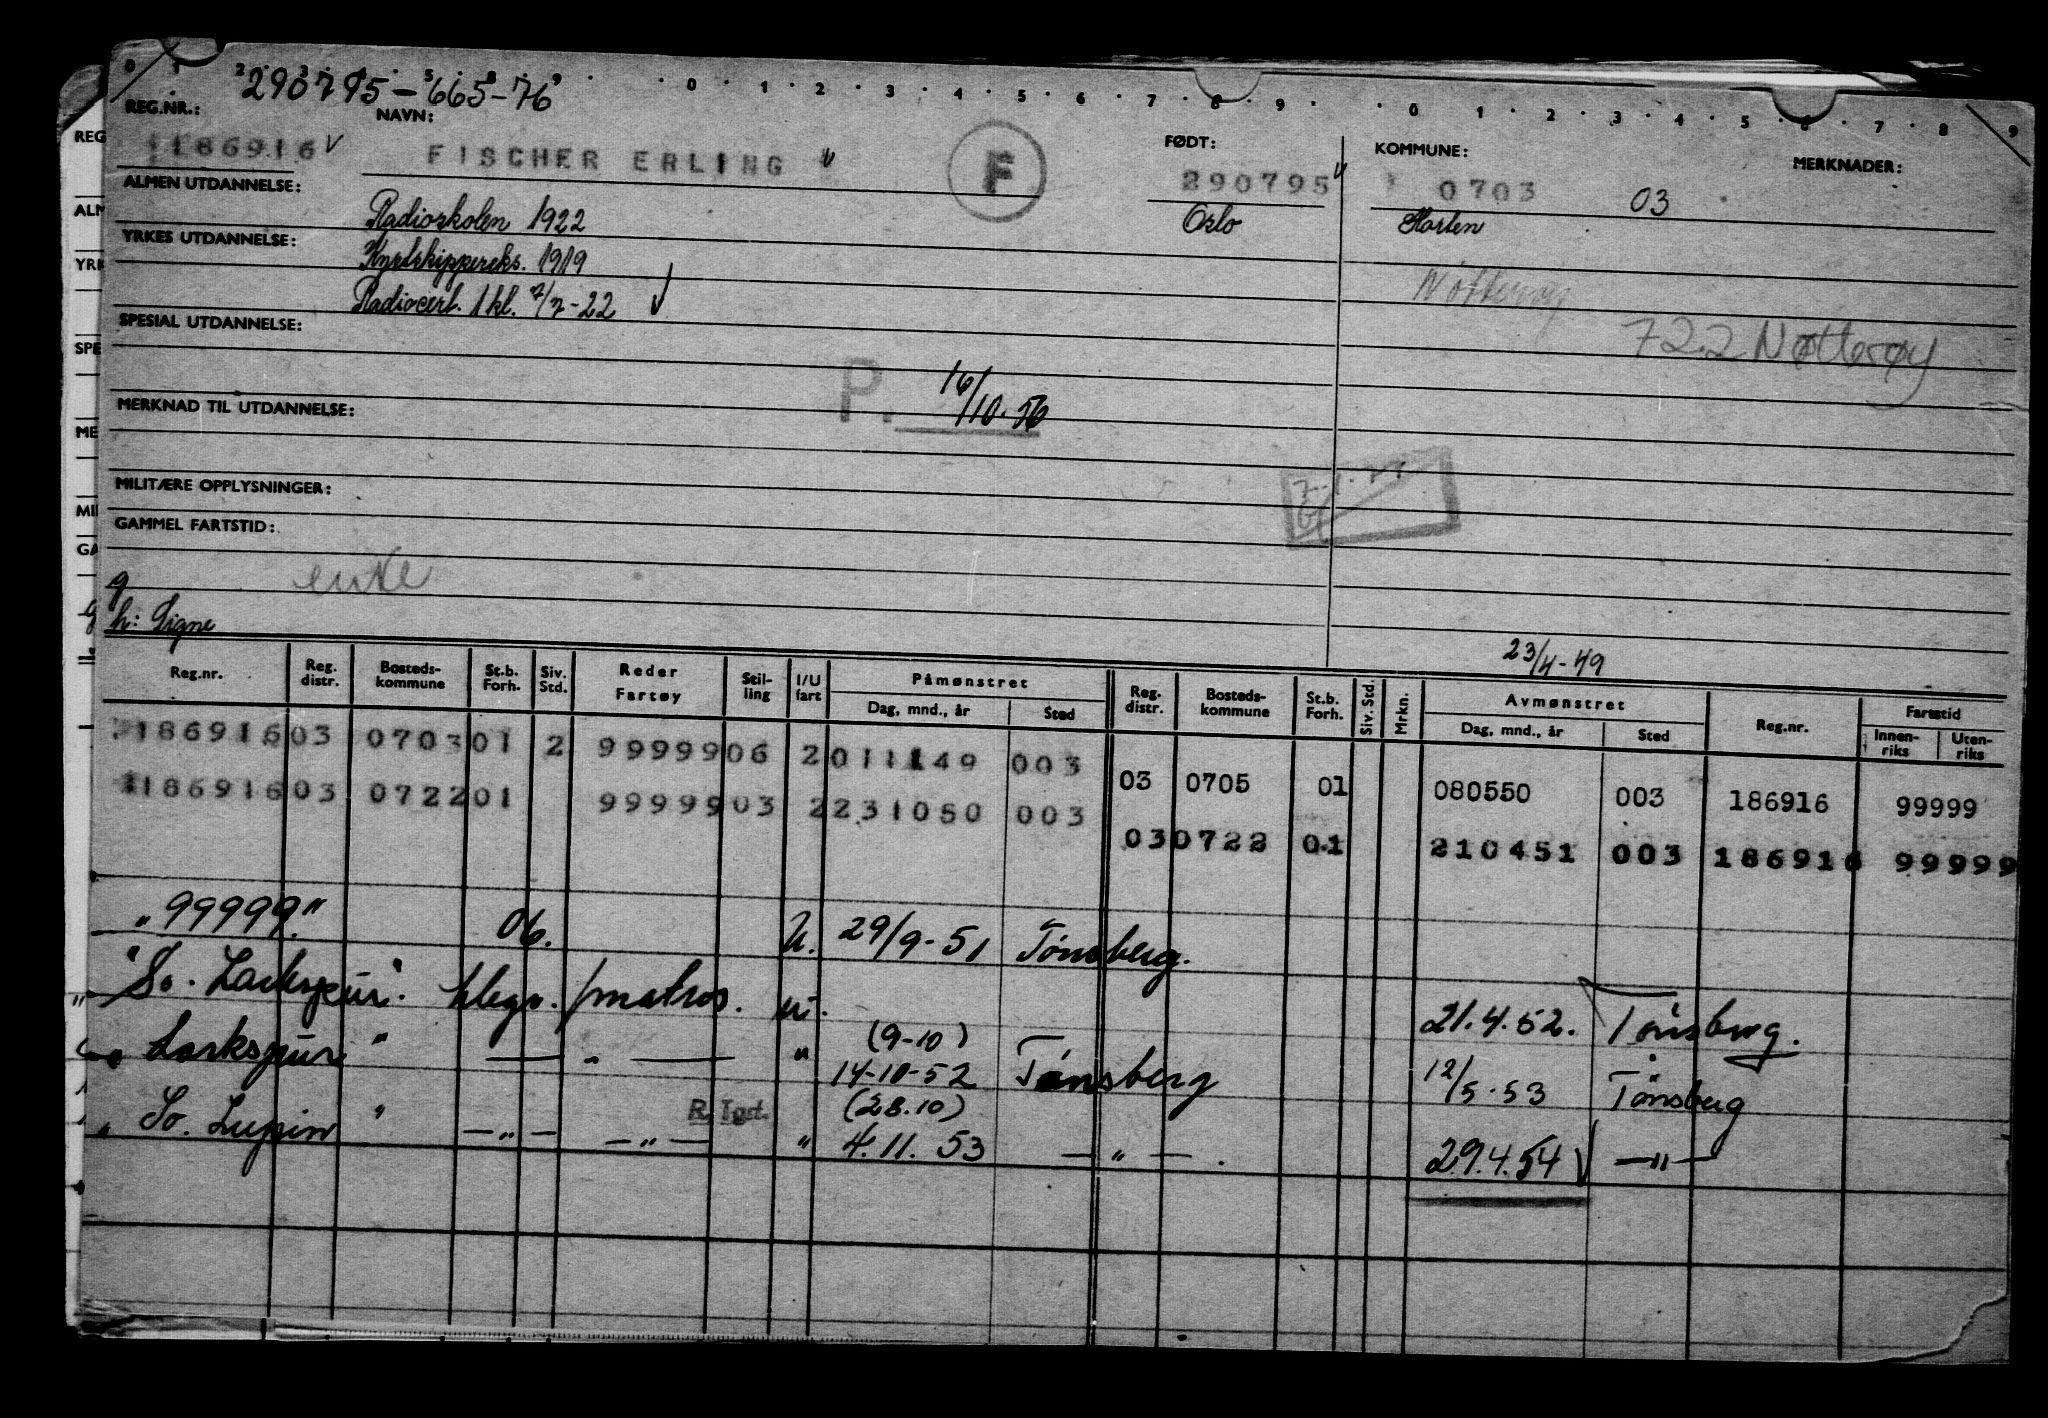 0 1 2 3 5 8 9 0 1 2 3 4 5 6 7 8 9 0 1 2 3 4 5 6 7 8 9
290795-665-76
REG.NR.: NAVN: FØDT: KOMMUNE: MERKNADER:
186916 V FISCHER ERLING V F 290795 V 0703 03
ALMEN UTDANNELSE: Radioskolen 1922 Oslo Horten
YRKES UTDANNELSE: Kystskippereks. 1919
Nøtterøy
Radiocert. 1 kl. 7/7-22 V
SPESIAL UTDANNELSE: 722 Nøtterøy
P. 16/10.56
MERKNAD TIL UTDANNELSE:
MILITÆRE OPPLYSNINGER:
GAMMEL FARTSTID:
enke
g
h: Signe
23/4-49
Reg.nr. Reg. distr. Bosteds-kommune St.b. Forh. Siv. Std. Reder Fartøy Stil-ling I/U fart Påmønstret Dag, mnd., år Sted Reg. distr. Bosteds-kommune St.b. Forh. Siv. Std. Mrkn. Avmønstret Dag, mnd., år Sted Reg.nr. Fartstid Innen-riks Uten-riks
186916 03 0703 01 2 99999 06 2 011149 003 03 0705 01 080550 003 186916 99999
186916 03 0722 01 99999 03 2 231050 003 03 0722 01 210451 003 186916 99999
"99999." 06. U. 29/9-51 Tønsberg.
"So. Larkspur". tlegr. /matros. u. 21.4.52. Tønsberg.
Larkspur " — " — " (9-10) 14-10-52 Tønsberg 12/5-53 Tønsberg
" So. Lupin " — " — R. Tgt. — " — " (28.10) 4.11.53 — " — . 29.4.54 V — " —